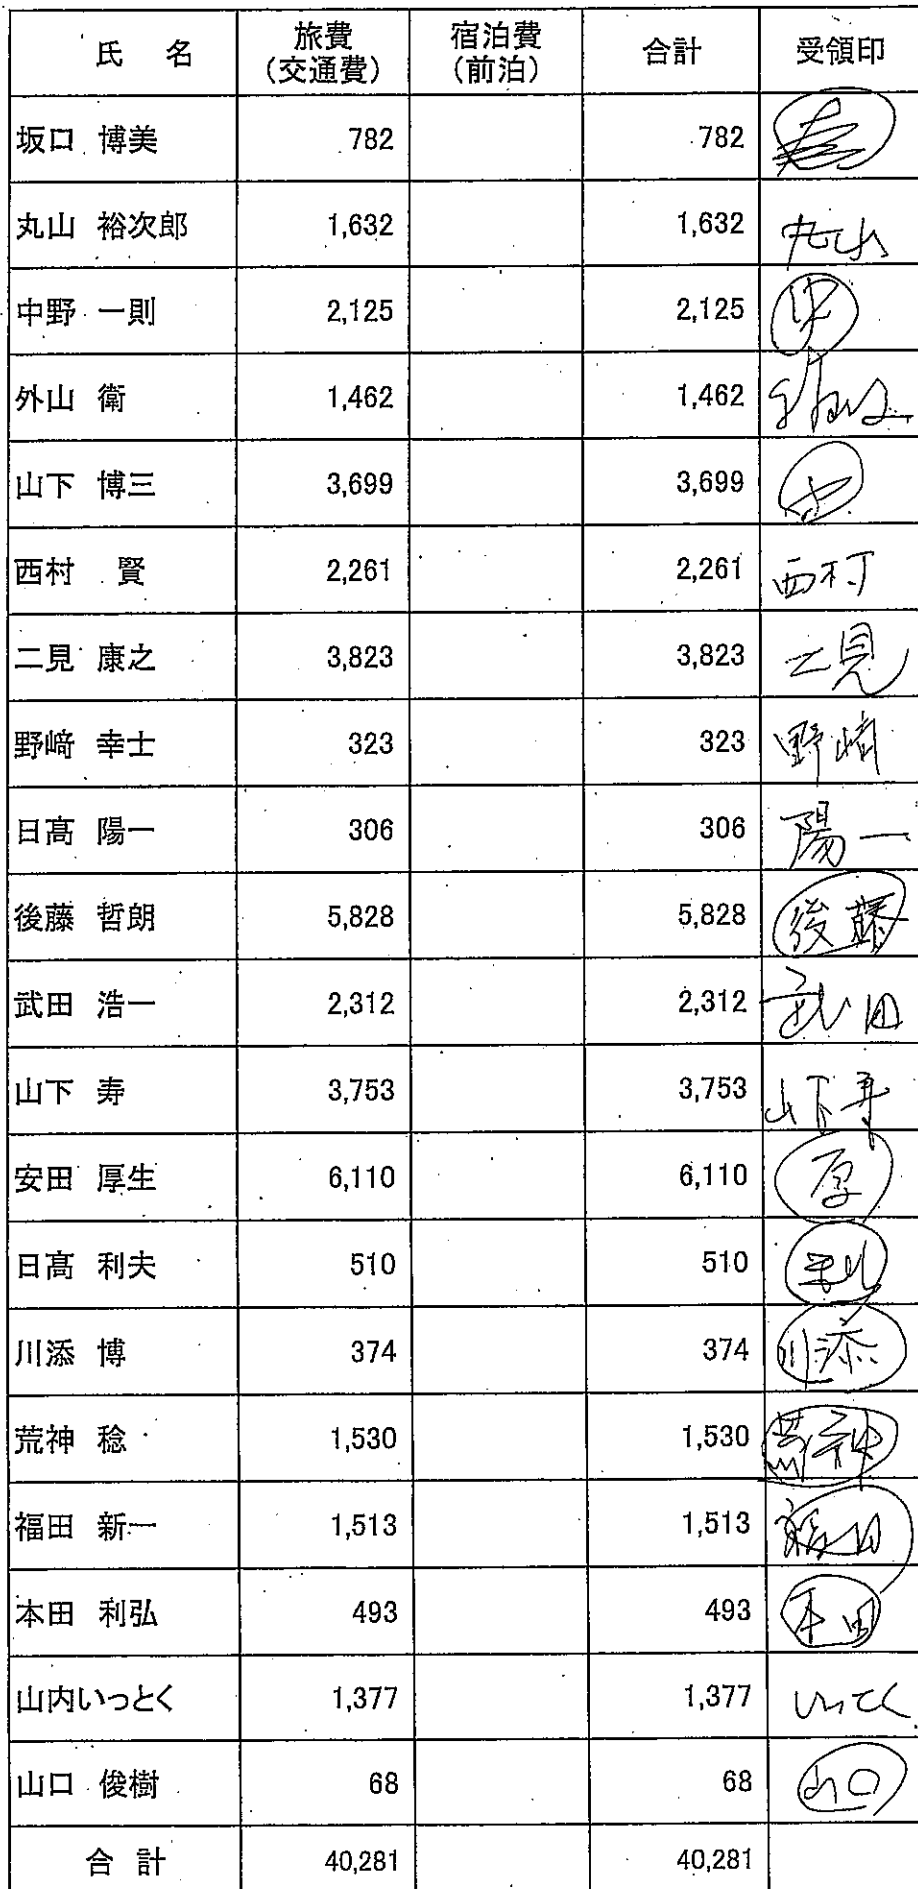 氏 名 旅費(交通費) 宿泊費(前泊) 合計 受領印
坂口 博美 782 782
丸山 裕次郎 1,632 1,632 丸山
中野 一則 2,125 2,125 中
外山 衛 1,462 1,462
山下 博三 3,699 3,699
西村 賢 2,261 2,261 西村
二見 康之 3,823 3,823 二見
野﨑 幸士 323 323 野崎
日髙 陽一 306 306 陽一
後藤 哲朗 5,828 5,828 後藤
武田 浩一 2,312 2,312 武田
山下 寿 3,753 3,753 山下寿
安田 厚生 6,110 6,110 厚
日髙 利夫 510 510 利
川添 博 374 374 川添
荒神 稔 1,530 1,530 荒神
福田 新一 1,513 1,513 福田
本田 利弘 493 493 本田
山内いっとく 1,377 1,377 いってく
山口 俊樹 68 68 山口
合 計 40,281 40,281